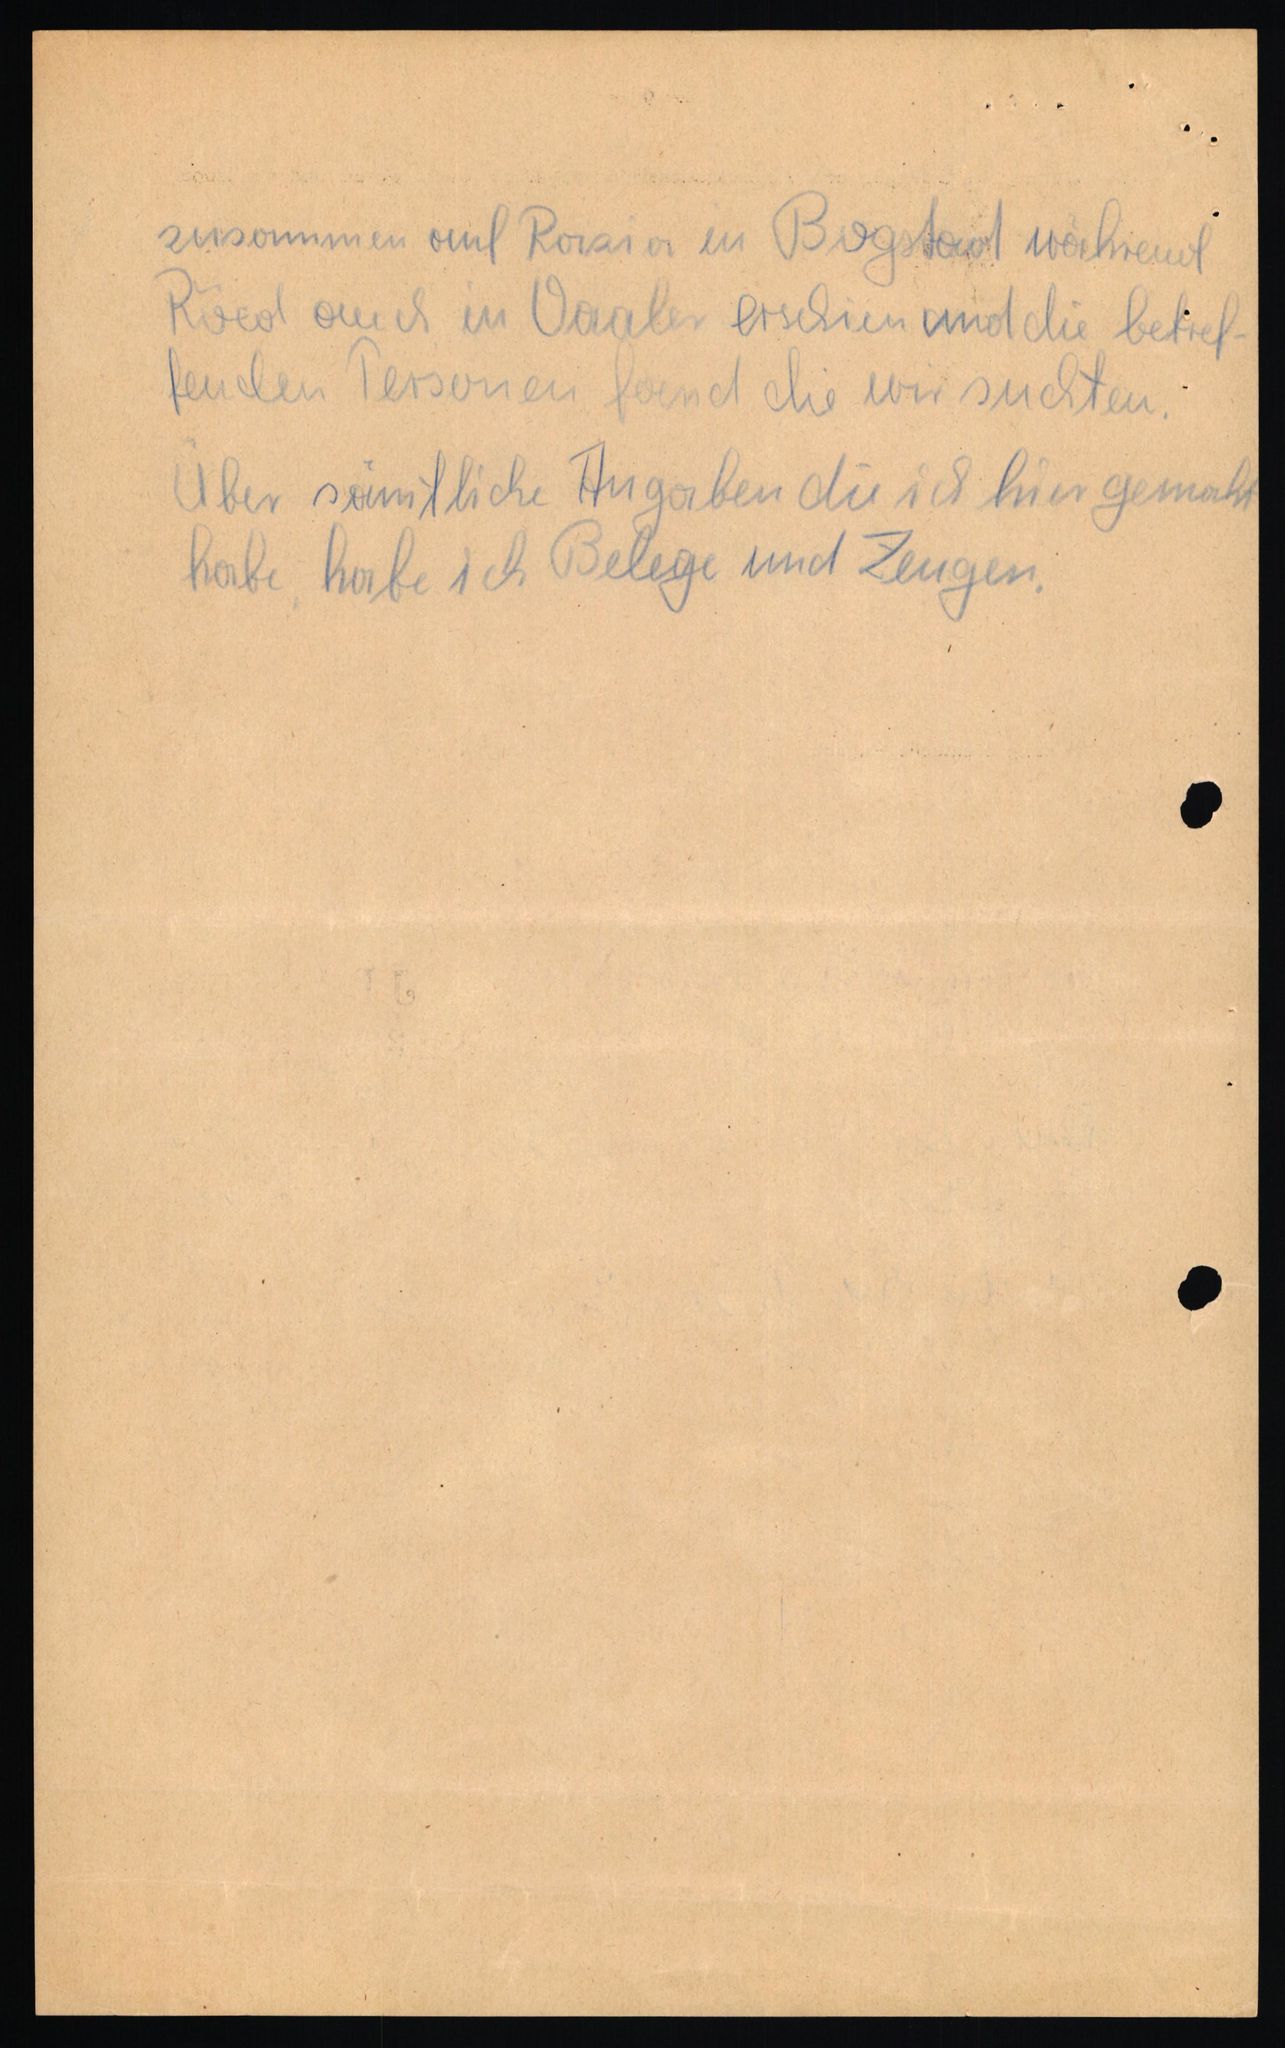 zusammen auf Razia in Bogstad während
Röed auch in Vaaler erschien und die betref-
fenden Personen fand die wir suchten.
Über sämtliche Angaben die ich hier gemacht
habe, habe ich Belege und Zeugen.